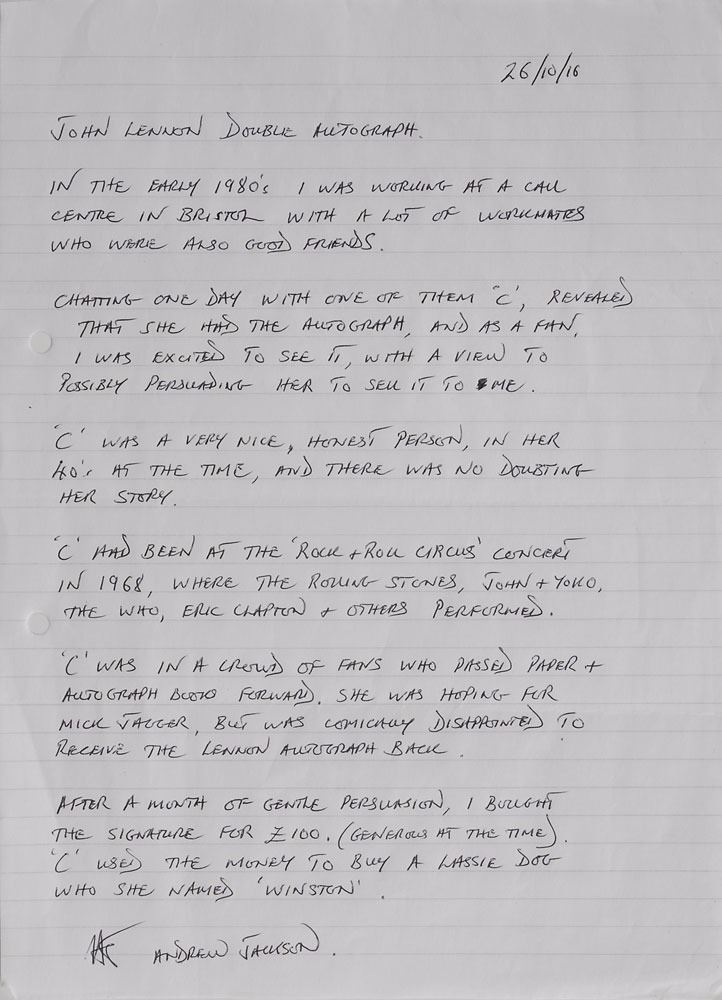 26/10/16
JOHN LENNON DOUBLE AUTOGRAPH.
IN THE EARLY 1980's I WAS WORKING AT A CALL
CENTRE IN BRISTOL WITH A LOT OF WORKMATES
WHO WERE ALSO GOOD FRIENDS.
CHATTING ONE DAY WITH ONE OF THEM 'C', REVEALED
THAT SHE HAD THE AUTOGRAPH, AND AS A FAN,
I WAS EXCITED TO SEE IT, WITH A VIEW TO
POSSIBLY PERSUADING HER TO SELL IT TO ME.
'C' WAS A VERY NICE, HONEST PERSON, IN HER
40's AT THE TIME, AND THERE WAS NO DOUBTING
HER STORY.
'C' HAD BEEN AT THE 'ROCK + ROLL CIRCUS' CONCERT
IN 1968, WHERE THE ROLLING STONES, JOHN + YOKO,
THE WHO, ERIC CLAPTON + OTHERS PERFORMED.
'C' WAS IN A CROWD OF FANS WHO PASSED PAPER +
AUTOGRAPH BOOKS FORWARD. SHE WAS HOPING FOR
MICK JAGGER, BUT WAS COMICALLY DISAPPOINTED TO
RECEIVE THE LENNON AUTOGRAPH BACK.
AFTER A MONTH OF GENTLE PERSUASION, I BOUGHT
THE SIGNATURE FOR £100. (GENEROUS AT THE TIME).
'C' USED THE MONEY TO BUY A LASSIE DOG
WHO SHE NAMED 'WINSTON'.
ANDREW JACKSON.